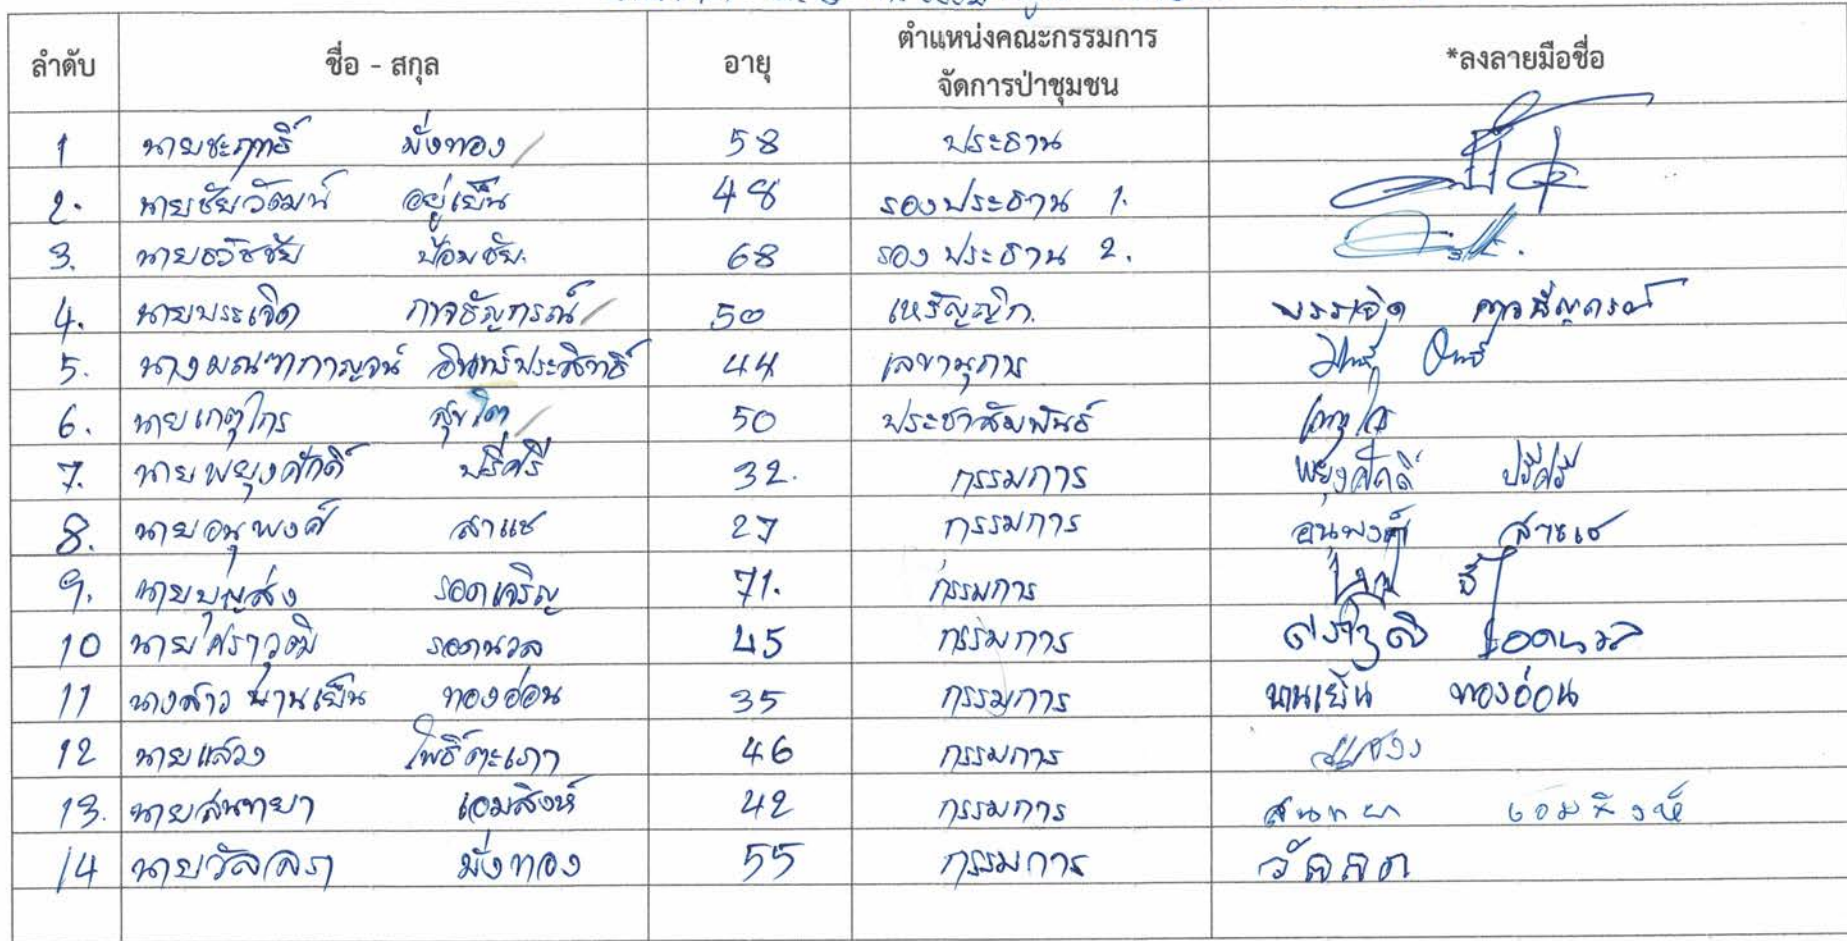 ลำดับ ชื่อ - สกุล อายุ ตำแหน่งคณะกรรมการ *ลงลายมือชื่อ
จัดการป่าชุมชน
1 นายชะฤทธิ์ มั่งทอง 58 ประธาน
2. นายชัยวัฒน์ อยู่เย็น 48 รองประธาน 1.
3. นายธวัชชัย ป้อมชัย. 68 รองประธาน 2.
4. นายประเจิด กาจธัญกรณ์ 50 เหรัญญิก.
5. นางมณฑากาญจน์ อินทร์ประสิทธิ์ 44 เลขานุการ
6. นายเกตุไกร สุขโต 50 ประชาสัมพันธ์
7. นายพยุงศักดิ์ ปรีศรี 32. กรรมการ พยุงศักดิ์ ปรีศรี
8. นายอนุพงศ์ สาแช 27 กรรมการ อนุพงศ์
9. นายบุญส่ง รอดเจริญ 71. กรรมการ
10 นายศราวุฒิ รอดนวล 45 กรรมการ ศราวุฒิ รอดนวล
11 นางสาว นานเย็น ทองอ่อน 35 กรรมการ นานเย็น ทองอ่อน
12 นายแสวง โพธิ์ตะเภา 46 กรรมการ แสวง
13. นายสนทยา เอมสิงห์ 42 กรรมการ สนทยา เอมสิงห์
14 นายวัลลภา มั่งทอง 55 กรรมการ